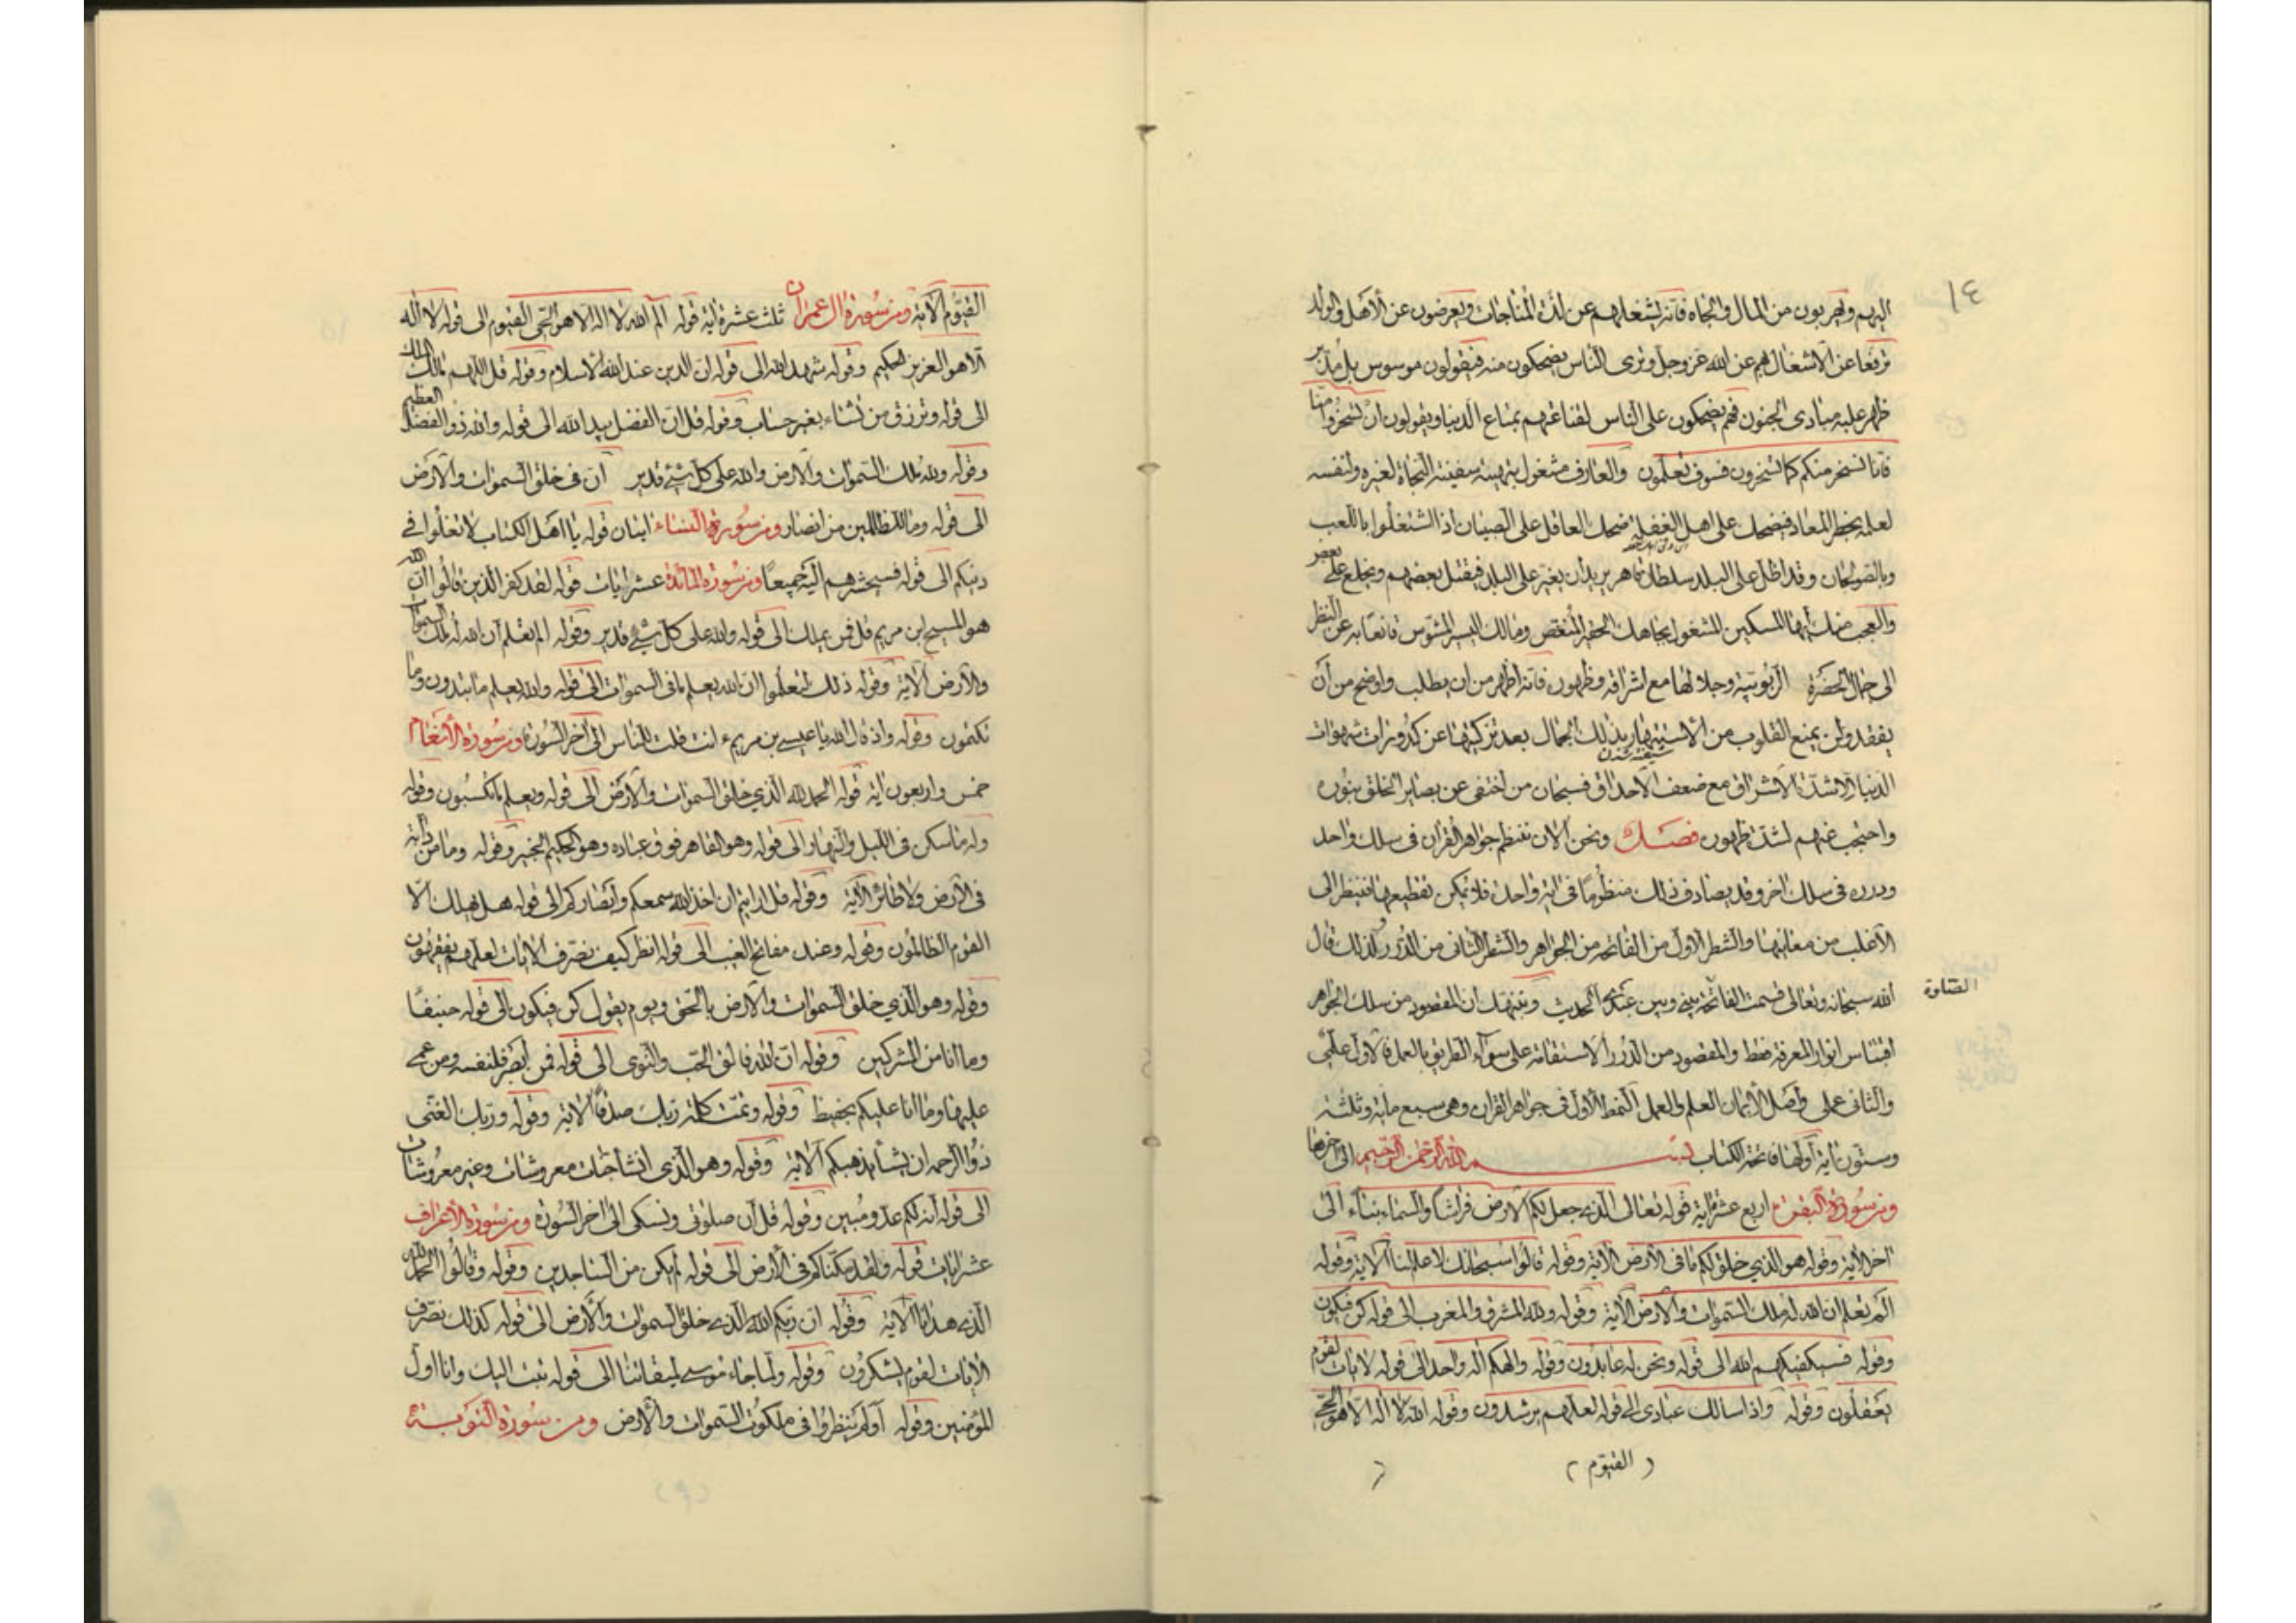 ١٤
اليهم ويهربون من المال والجاه فانه يشغلهم عن لذة المناجات ويعرضون عن الاهل والولد
ترفعا عن الاشتغال بهم عن الله عز وجل وترى الناس يضحكون منه فيقولون موسوس بل مدبر
ظهر عليه مبادى الجنون فهم يضحكون على الناس لقناعتهم بمتاع الدنيا ويقولون ان تسخروا منا
فانا نسخر منكم كما تسخرون فسوف تعلمون والعارف مشغول بتهيئة سفينة النجاة لغيره ولنفسه
لعلمه بخطر المعاد فيضحك على اهل الغفلة ضحك العاقل على الصبيان اذا اشتغلوا باللعب
وبالصولجان وقد اظل على البلد سلطان قاهر يريد ان يغير على البلد فيقتل بعضهم ويخلع على بعض
والعجب منك ايها المسكين المشغول بجاهك الحقير المنغص ومالك اليسير المشوش قانعا به عن النظر
الى جمال الحضرة الربوبية وجلالها مع اشراقه وظهوره فانه اظهر من ان يطلب واوضح من ان
يفقد ولن يمنع القلوب من الاستهتار بذلك الجمال بعد تزكيتها عن كدورات شهوات
شيفته شدن
الدنيا الا شدة الاشراق مع ضعف الاحداق فسبحان من اختفى عن بصاير الخلق بنوره
واحتجب عنهم لشدة ظهوره فصل ونحن الان ننظم جواهر القران فى سلك واحد
ودرره فى سلك اخر وقد يصادف ذلك منظوما فى اية واحدة فلا يمكن تقطيعها فينظر الى
الاغلب من معانيها والشطر الاول من الفاتحة من الجواهر والشطر الثانى من الدرر ولذلك قال
الله سبحانه وتعالى قسمت الفاتحة بينى وبين عبدى الحديث وننبهك ان المقصود من سلك الجواهر
الصلوة
اقتباس انوار المعرفة فقط والمقصود من الدرر الاستقامة على سواء الطريق بالعمل فالاول علمى
والثانى عملى واصل الايمان العلم والعمل النمط الاول فى جواهر القران وهى سبع مائة وثلثة
وستون اية اولها فاتحة الكتاب بسم الله الرحمن الرحيم الى اخرها
ومن سورة البقرة اربع عشر اية قوله تعالى الذى جعل لكم الارض فراشا والسماء بناء الى
اخر الاية وقوله هو الذى خلق لكم ما فى الارض الاية وقوله قالوا سبحانك لا علم لنا الاية وقوله
الم تعلم ان الله له ملك السموات والارض الاية وقوله ولله المشرق والمغرب الى قوله كن فيكون
وقوله فسيكفيكهم الله الى قوله ونحن له عابدون وقوله والهكم اله واحد الى قوله لايات لقوم
يعقلون وقوله واذا سالك عبادى الى قوله لعلهم يرشدون وقوله الله لا اله الا هو الحى
( القيوم )
القيوم الاية ومن سورة ال عمران ثلث عشرة اية قوله الم الله لا اله الا هو الحى القيوم الى قوله لا اله
الا هو العزيز الحكيم وقوله شهد الله الى قوله ان الدين عند الله الاسلام وقوله قل اللهم مالك الملك
الى قوله وترزق من تشاء بغير حساب وقوله قل ان الفضل بيد الله الى قوله والله ذو الفضل العظيم
وقوله ولله ملك السموات والارض والله على كل شئ قدير ان فى خلق السموات والارض
الى قوله وما للظالمين من انصار ومن سورة النساء ايتان قوله يا اهل الكتاب لا تغلوا فى
دينكم الى قوله فسيحشرهم اليه جميعا ومن سورة المائدة عشر ايات قوله لقد كفر الذين قالوا ان الله
هو المسيح ابن مريم قل فمن يملك الى قوله والله على كل شئ قدير وقوله الم تعلم ان الله له ملك السموات
والارض الاية وقوله ذلك لتعلموا ان الله يعلم ما فى السموات الى قوله والله يعلم ما تبدون وما
تكتمون وقوله واذ قال الله يا عيسى بن مريم ءانت قلت للناس الى اخر السورة ومن سورة الانعام
خمس واربعون اية قوله الحمد لله الذى خلق السموات والارض الى قوله ويعلم ما تكسبون وقوله
وله ما سكن فى الليل والنهار الى قوله وهو القاهر فوق عباده وهو الحكيم الخبير وقوله وما من دابة
فى الارض ولا طائر الاية وقوله قل ارايتم ان اخذ الله سمعكم وابصاركم الى قوله هل يهلك الا
القوم الظالمون وقوله وعنده مفاتح الغيب الى قوله انظر كيف نصرف الايات لعلهم يفقهون
وقوله وهو الذى خلق السموات والارض بالحق ويوم يقول كن فيكون الى قوله حنيفا
وما انا من المشركين وقوله ان الله فالق الحب والنوى الى قوله فمن ابصر فلنفسه ومن عمى
عليها وما انا عليكم بحفيظ وقوله وتمت كلمة ربك صدقا الاية وقوله وربك الغنى
ذو الرحمة ان يشأ يذهبكم الاية وقوله وهو الذى انشا جنات معروشات وغير معروشات
الى قوله انه لكم عدو مبين وقوله قل ان صلوتى ونسكى الى اخر السورة ومن سورة الاعراف
عشر ايات قوله ولقد مكناكم فى الارض الى قوله لم يكن من الساجدين وقوله وقالوا الحمد لله
الذى هدانا الاية وقوله ان ربكم الله الذى خلق السموات والارض الى قوله كذلك نصرف
الايات لقوم يشكرون وقوله ولما جاء موسى لميقاتنا الى قوله تبت اليك وانا اول
المؤمنين وقوله اولم ينظروا فى ملكوت السموات والارض ومن سورة التوبة